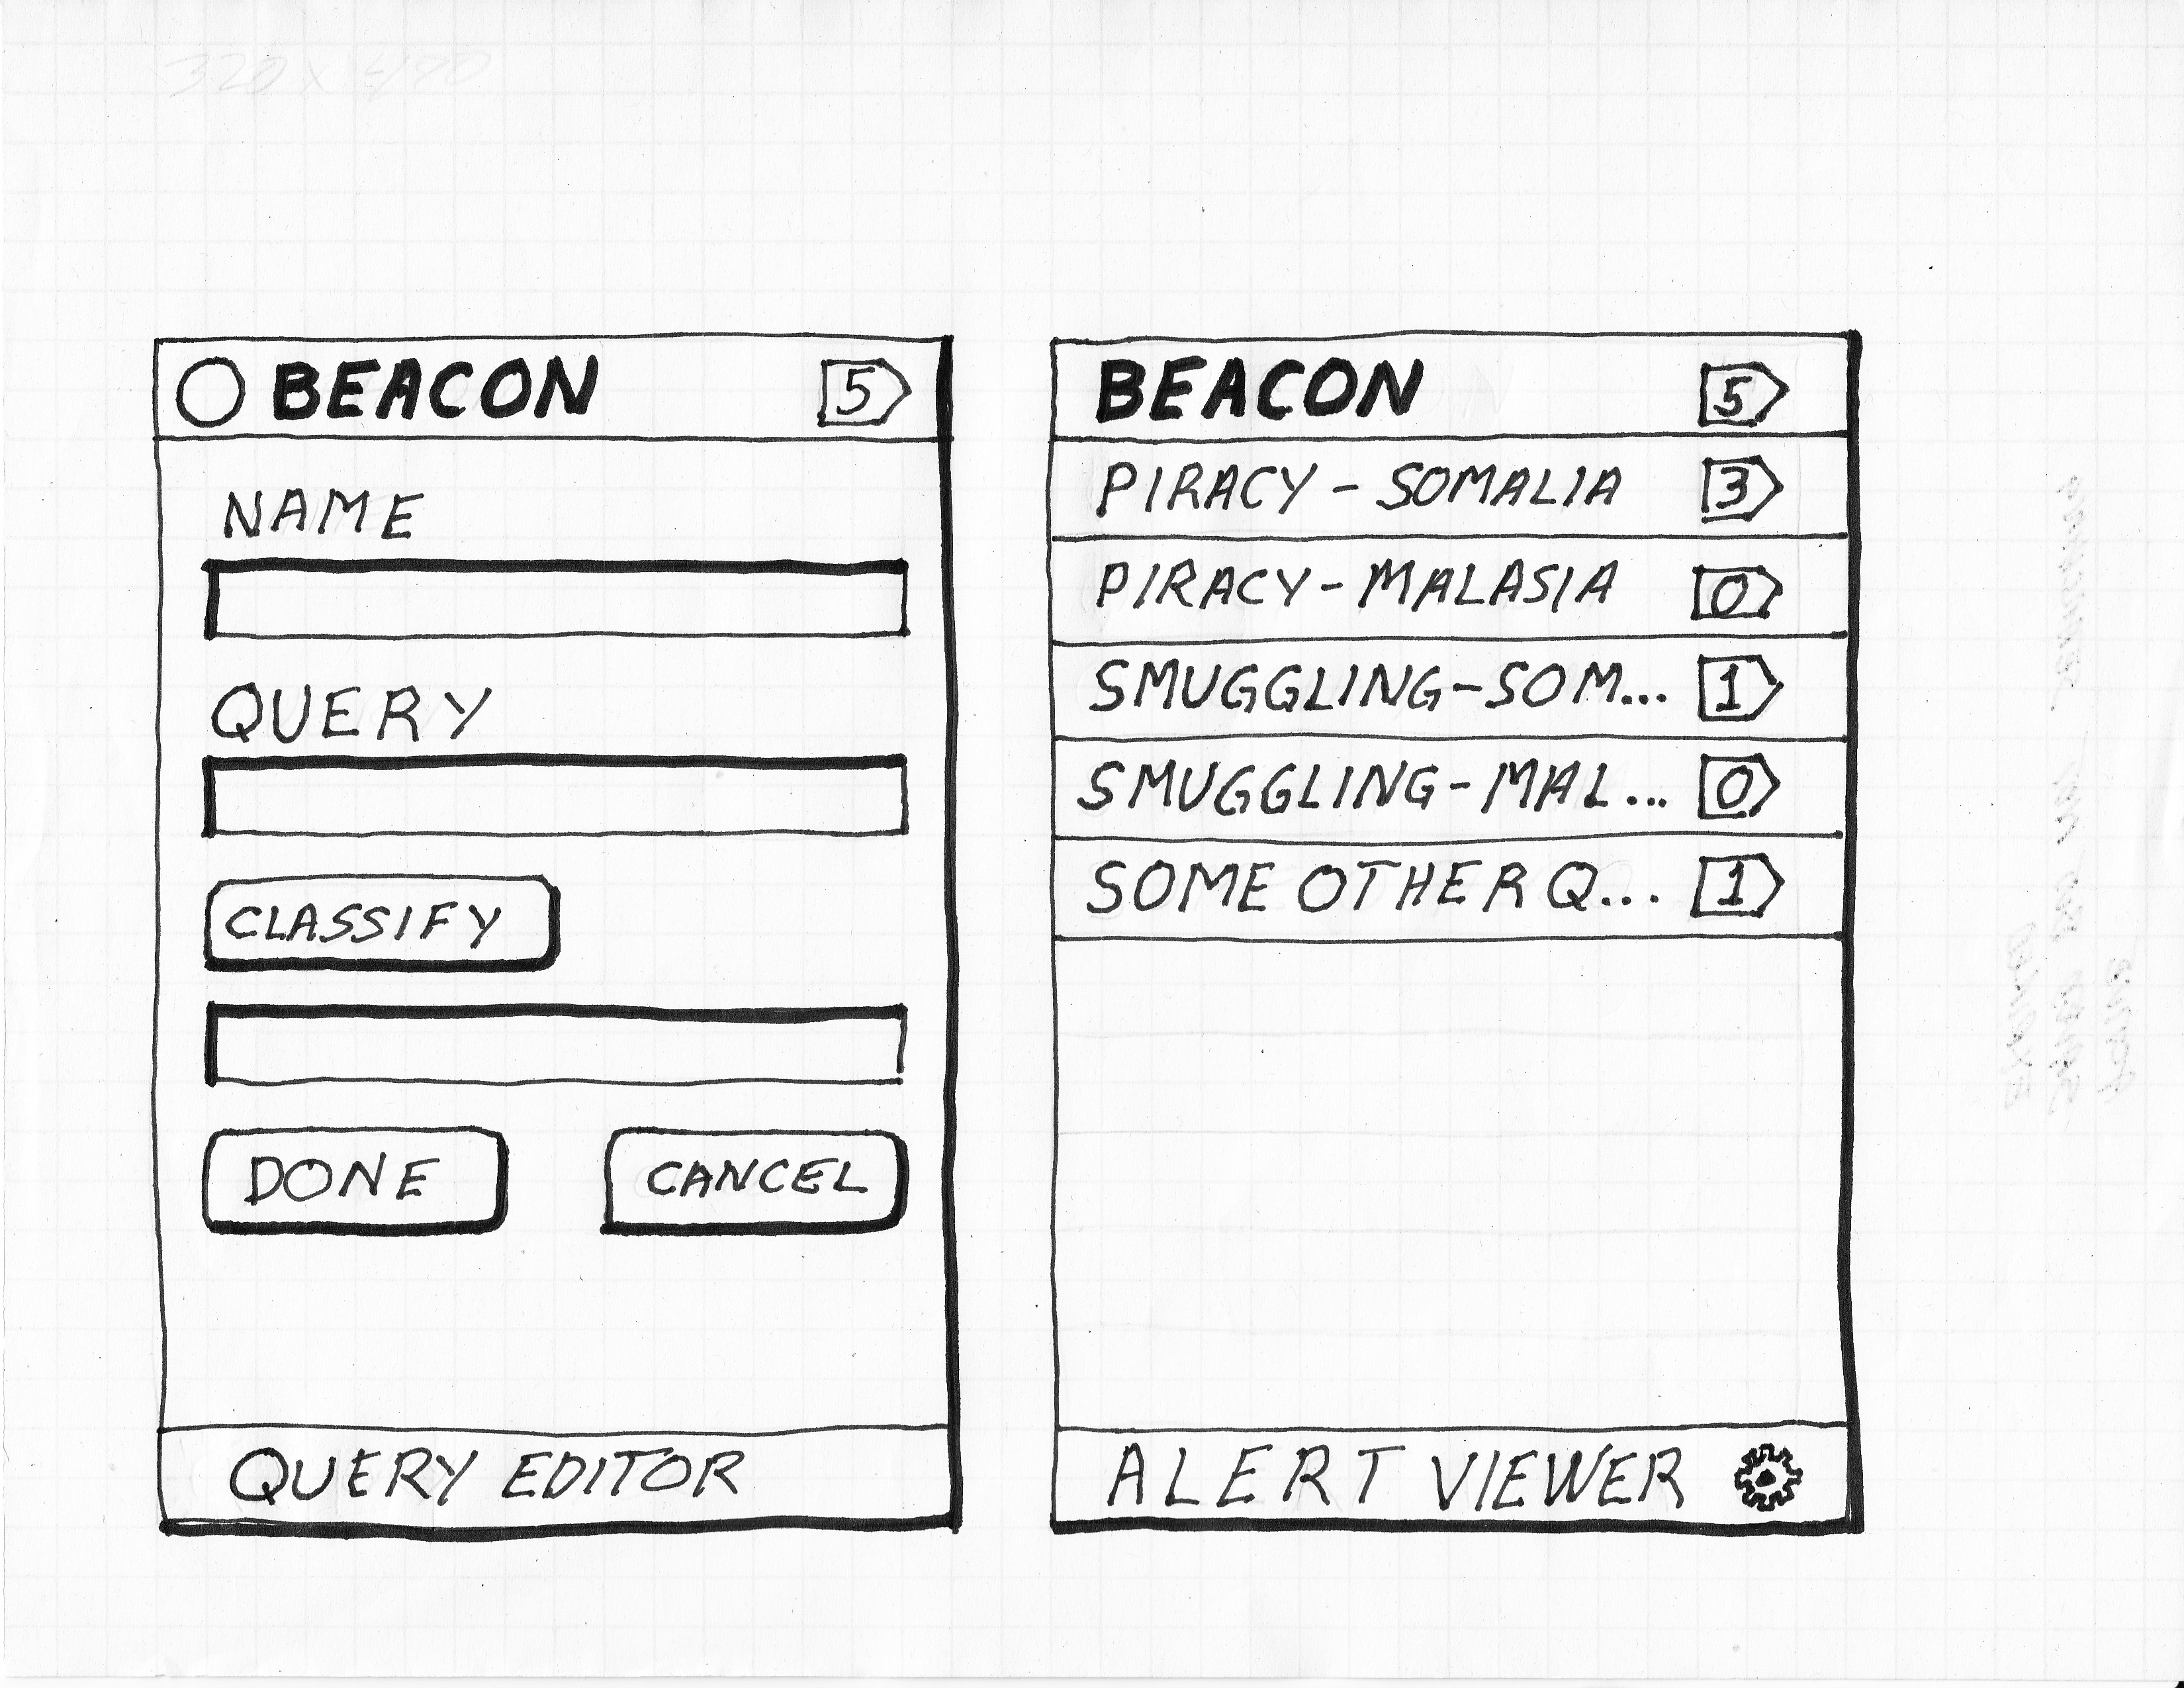 320 x 480
BEACON 5
NAME
QUERY
CLASSIFY
DONE CANCEL
QUERY EDITOR
BEACON 5
PIRACY - SOMALIA 3
PIRACY - MALASIA 0
SMUGGLING - SOM... 1
SMUGGLING - MAL... 0
SOME OTHER Q... 1
ALERT VIEWER